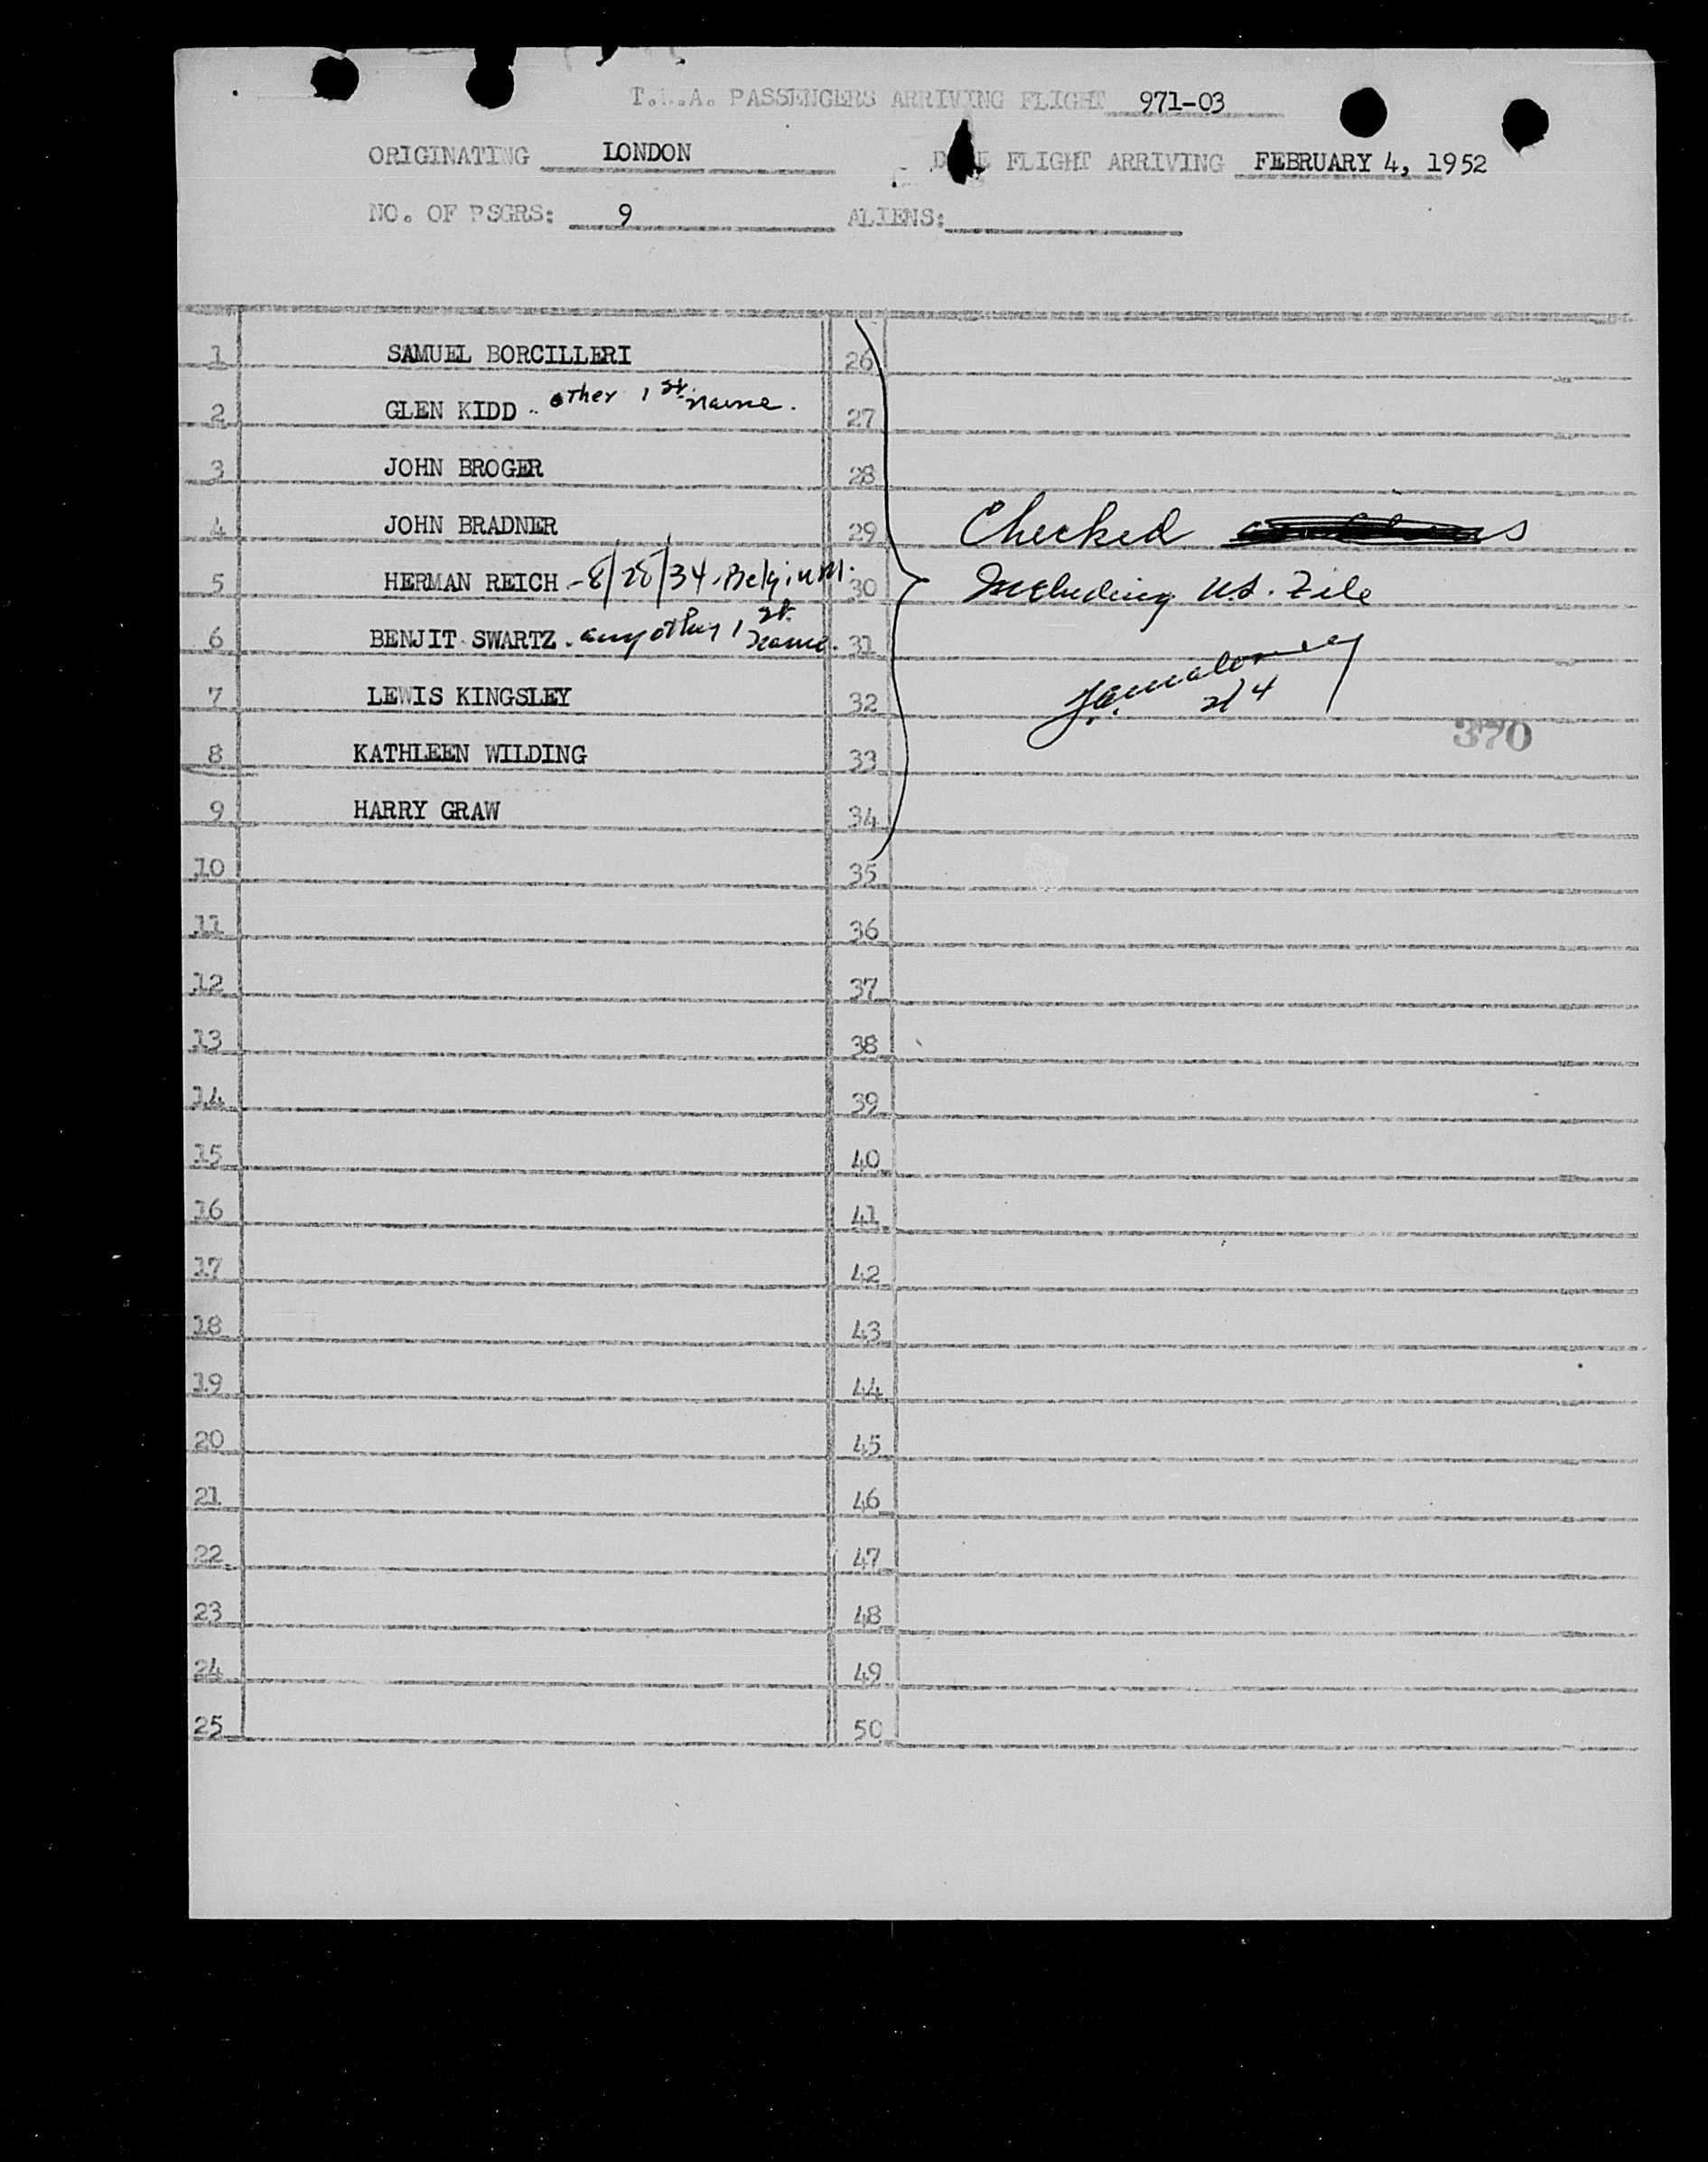 T.W.A. PASSENGERS ARRIVING FLIGHT 971-03
ORIGINATING LONDON DATE FLIGHT ARRIVING FEBRUARY 4, 1952
NO. OF PSGRS: 9 ALIENS:
1 SAMUEL BORCILLERI 26
2 GLEN KIDD .. other 1 st. name. 27
3 JOHN BROGER 28
4 JOHN BRADNER 29 Checked
5 HERMAN REICH - 8/28/34 - Belgium. 30 Including US. File
6 BENJIT SWARTZ . any other 1 st. name. 31
7 LEWIS KINGSLEY 32 2/4
370
8 KATHLEEN WILDING 33
9 HARRY GRAW 34
10 35
11 36
12 37
13 38
14 39
15 40
16 41
17 42
18 43
19 44
20 45
21 46
22 47
23 48
24 49
25 50